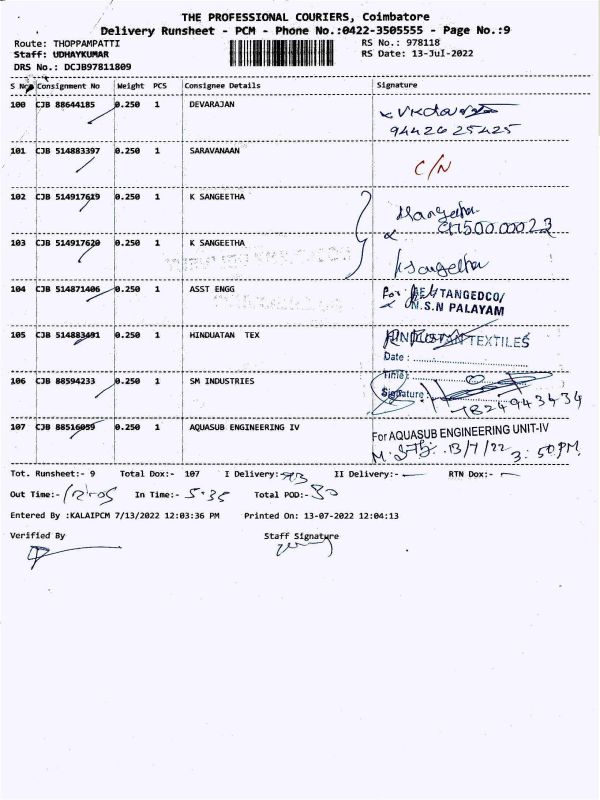 THE PROFESSIONAL COURIERS, Coimbatore
Delivery Runsheet - PCM - Phone No.:0422-3505555 - Page No.:9
Route: THOPPAMPATTI RS No.: 978118
Staff: UDHAYKUMAR RS Date: 13-Jul-2022
DRS No.: DCJB97811809
S No Consignment No Weight PCS Consignee Details Signature
100 CJB 88644185 0.250 1 DEVARAJAN
9442625425
101 CJB 514883397 0.250 1 SARAVANAAN C/N
102 CJB 514917619 0.250 1 K SANGEETHA Sangeetha
103 CJB 514917620 0.250 1 K SANGEETHA KSangeetha
104 CJB 514871406 0.250 1 ASST ENGG For AE/TANGEDCO/
N.S.N PALAYAM
105 CJB 514883491 0.250 1 HINDUATAN TEX HINDUSTAN TEXTILES
Date :
Time:
106 CJB 88594233 0.250 1 SM INDUSTRIES Signature :
7824943434
107 CJB 88516059 0.250 1 AQUASUB ENGINEERING IV For AQUASUB ENGINEERING UNIT-IV
13/7/22 3:50PM
Tot. Runsheet:- 9 Total Dox:- 107 I Delivery:- II Delivery:- RTN Dox:-
Out Time:- In Time:- 5:35 Total POD:- 80
Entered By :KALAIPCM 7/13/2022 12:03:36 PM Printed On: 13-07-2022 12:04:13
Verified By Staff Signature